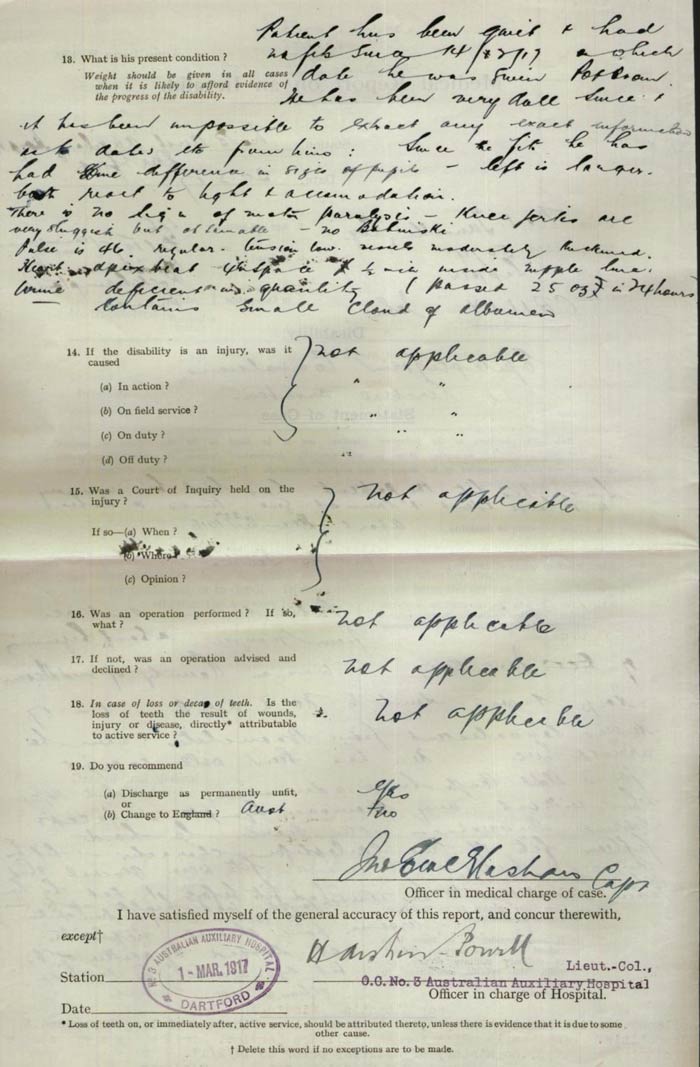 Patient has been quiet & had
13. What is his present condition ?
no fits since 14/2/17 on which
Weight should be given in all cases
when it is likely to afford evidence of
the progress of the disability.
date he was given Pot Brom.
He has been very dull since &
it has been impossible to extract any exact information
as to dates etc from him : Since the fits he has
had some difference in sizes of pupils – left is larger.
both react to light & accomodation.
There is no sign of motor paralysis – Knee jerks are
very sluggish but obtainable – no Babinski
Pulse is 46. regular. tension low. vessels moderately thickened.
Heart – apex beat space ½ in inside nipple line.
Urine deficient in quantity (passed 25 oz in 24 hours
Contains small cloud of albumen
14. If the disability is an injury, was it
caused
not applicable
(a) In action ? " "
(b) On field service ? " "
(c) On duty ? " "
(d) Off duty ? "
15. Was a Court of Inquiry held on the
injury ?
not applicable
If so—(a) When ?
(b) Where ?
(c) Opinion ?
16. Was an operation performed ? If so,
what ?
not applicable
17. If not, was an operation advised and
declined ?
not applicable
18. In case of loss or decay of teeth. Is the
loss of teeth the result of wounds,
injury or disease, directly* attributable
to active service ?
not applicable
19. Do you recommend
(a) Discharge as permanently unfit, yes
or
(b) Change to England ? Aust no
Capt
Officer in medical charge of case.
I have satisfied myself of the general accuracy of this report, and concur therewith,
except†
Powell
Lieut.-Col.,
O.C. No. 3 Australian Auxiliary Hospital
Station
No 3 AUSTRALIAN AUXILIARY HOSPITAL
1 - MAR. 1917
DARTFORD
Officer in charge of Hospital.
Date
* Loss of teeth on, or immediately after, active service, should be attributed thereto, unless there is evidence that it is due to some
other cause.
† Delete this word if no exceptions are to be made.